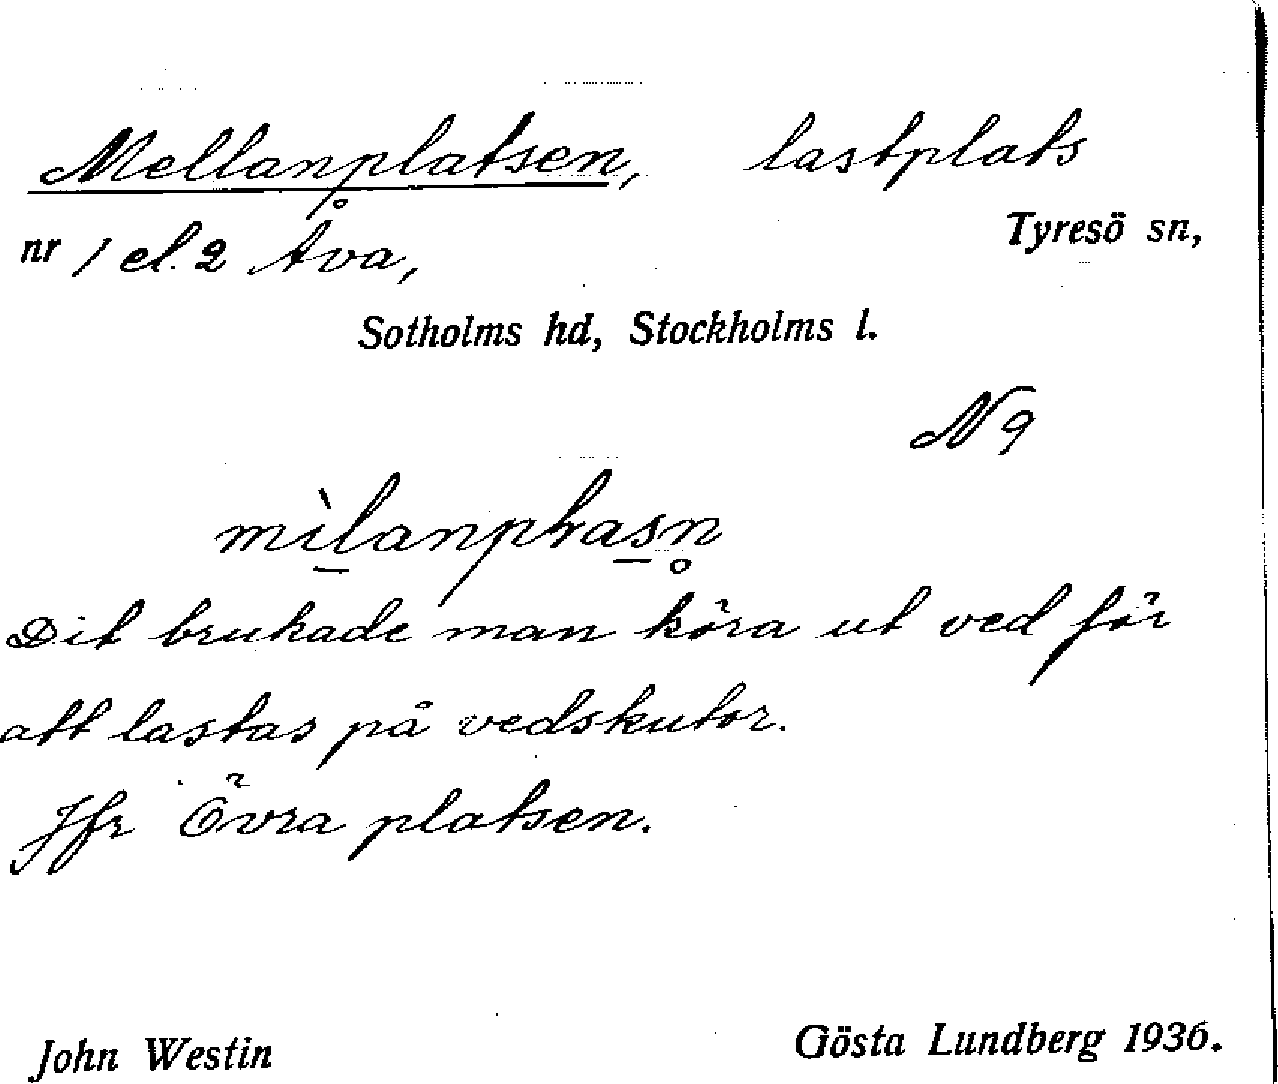 Mellanplatsen, lastplats
Tyresö sn,
nr 1 el. 2 Åva,
Sotholms hd, Stockholms l.
N 9
Dit brukade man köra ut ved för
att lastas på vedskutor.
Jfr Övra platsen.
John Westin Gösta Lundberg 1936.